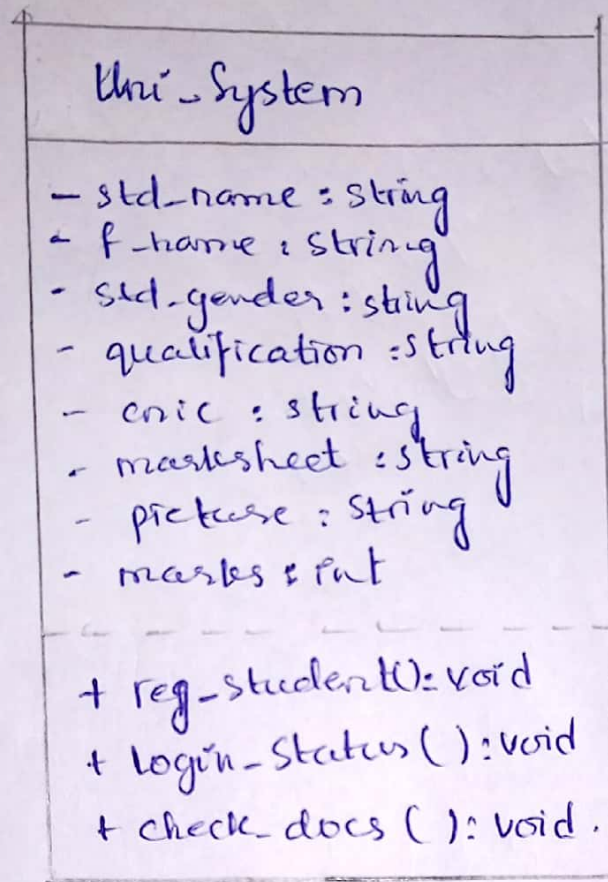 Uni_System
- std_name : string
- f_name : string
- std_gender : string
- qualification : string
- cnic : string
- marksheet : string
- picture : string
- marks : int
+ reg_student() : void
+ login_status() : void
+ check_docs() : void.